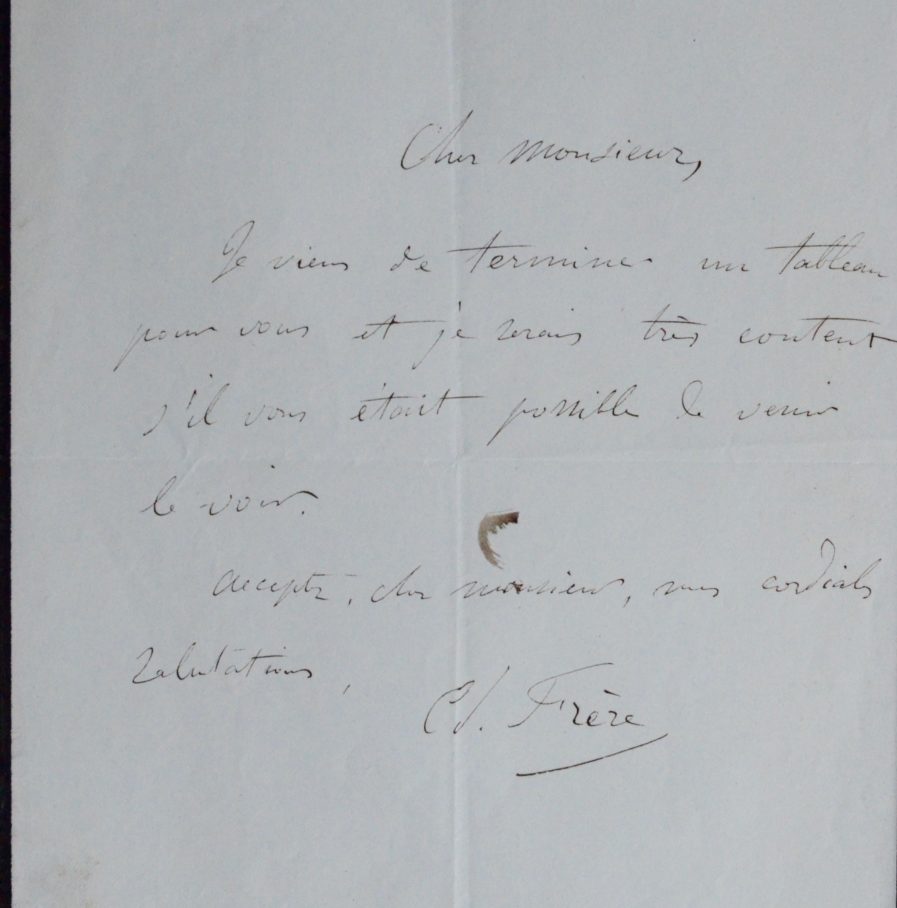 Cher Monsieur,
Je viens de terminer un tableau
pour vous et je serais très content
s'il vous était possible de venir
le voir.
Acceptez, cher monsieur, mes cordiales
salutations,
Ed. Frère